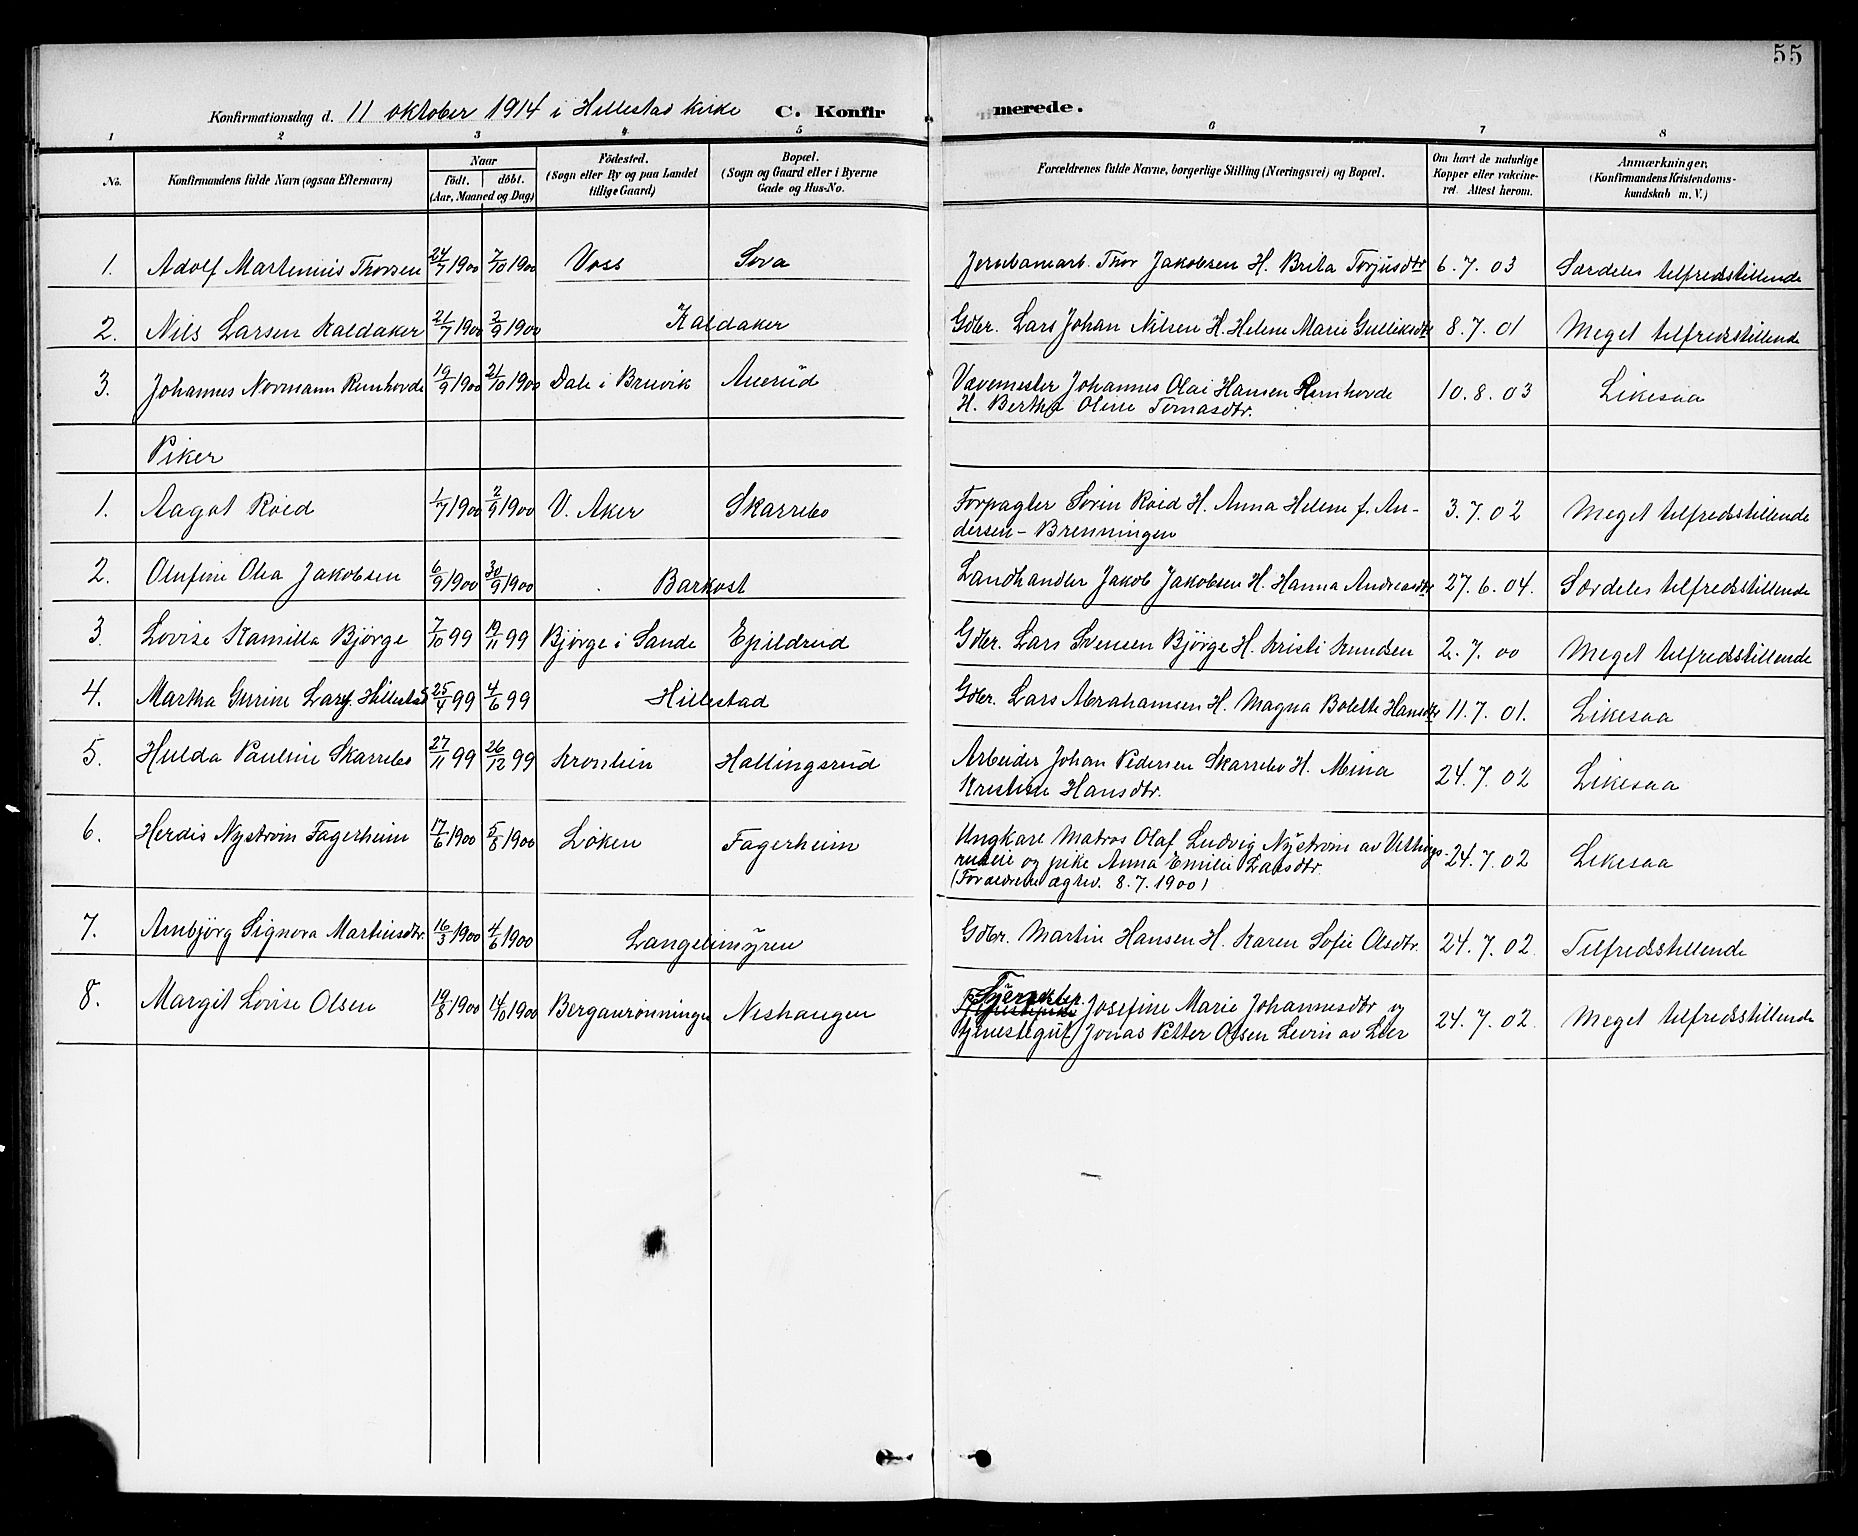 55
Konfirmationsdag d. 11 oktober 1914 i Hillestad kirke C. Konfirmerede.
1 2 3 4 5 6 7 8
No. Konfirmandens fulde Navn (ogsaa Efternavn) Naar født. døbt. (Aar, Maaned og Dag) Fødested. (Sogn eller By og paa Landet tillige Gaard) Bopæl. (Sogn og Gaard eller i Byerne Gade og Hus-No. Forældrenes fulde Navne, borgerlige Stilling (Næringsvei) og Bopæl. Om havt de naturlige Kopper eller vakcineret. Attest herom. Anmærkninger. (Konfirmandens Kristendomskundskab m. V.)
1. Adolf Martinius Thorsen 24/7 1900 7/10 1900 Voss Sova Jernbanearb. Thor Jakobsen H. Brita Torjusdtr 6.7.03 Særdeles tilfredstillende
2. Nils Larsen Kaldaker 21/7 1900 2/9 1900 Kaldaker Gdbr. Lars Johan Nilsen H. Helene Marie Gulliksdtr 8.7.01 Meget tilfredsstillende
3. Johannes Normann Remhovde 19/9 1900 21/10 1900 Dale i Bruvik Auerud Vævemester Johannes Olai Hansen Remhovde
H. Bertha Oline Tomasdtr. 10.8.03 Likesaa
Piker
1. Aagot Roed 1/7 1900 2/9 1900 V. Aker Skarrebo Forpagter Sørin Roed H. Anna Helene f. An-
dersen - Brenningen 3.7.02 Meget tilfredsstillende
2. Olufine Olea Jakobsen 6/9 1900 30/9 1900 Barkost Landhandler Jakob Jakobsen H. Hanna Andreasdtr 27.6.04. Særdeles tilfredsstillende
3. Lovise Kamilla Bjørge 7/10 99 19/11 99 Bjørge i Sande Epildrud Gdbr. Lars Svensen Bjørge H. Kristi Knudsen 2.7.00 Meget tilfredsstillende
4. Martha Gurine Larsd. Hillestad 25/4 99 4/6 99 Hillestad Gdbr. Lars Abrahamsen H. Magna Bolette Hansdtr 11.7.01. Likesaa
5. Hulda Pauline Skarrebo 27/11 99 26/12 99 Kronlien Hallingsrud Arbeider Johan Pedersen Skarrebo H. Mina
Kristine Hansdtr. 24.7.02 Likesaa
6. Herdis Nystrøm Fagerheim 17/6 1900 5/8 1900 Løken Fagerheim Ungkare Matros Olaf Ludvig Nystrøm av
og pike Anna Emilie Larsdtr.
(Forældrene ægtev. 8.7.1900) 24.7.02 Likesaa
7. Arnbjørg Signora Martinsdtr. 16/3 1900 4/6 1900 Langelimyren Gdbr. Martin Hansen H. Karen Sofie Olsdtr. 24.7.02 Tilfredsstillende
8. Margit Lovise Olsen 19/8 1900 14/10 1900 Berganrønningen Neshaugen Josefine Marie Johannesdtr og
tjenestegut Jonas Petter Olsen av Leer 24.7.02. Meget tilfredsstillende